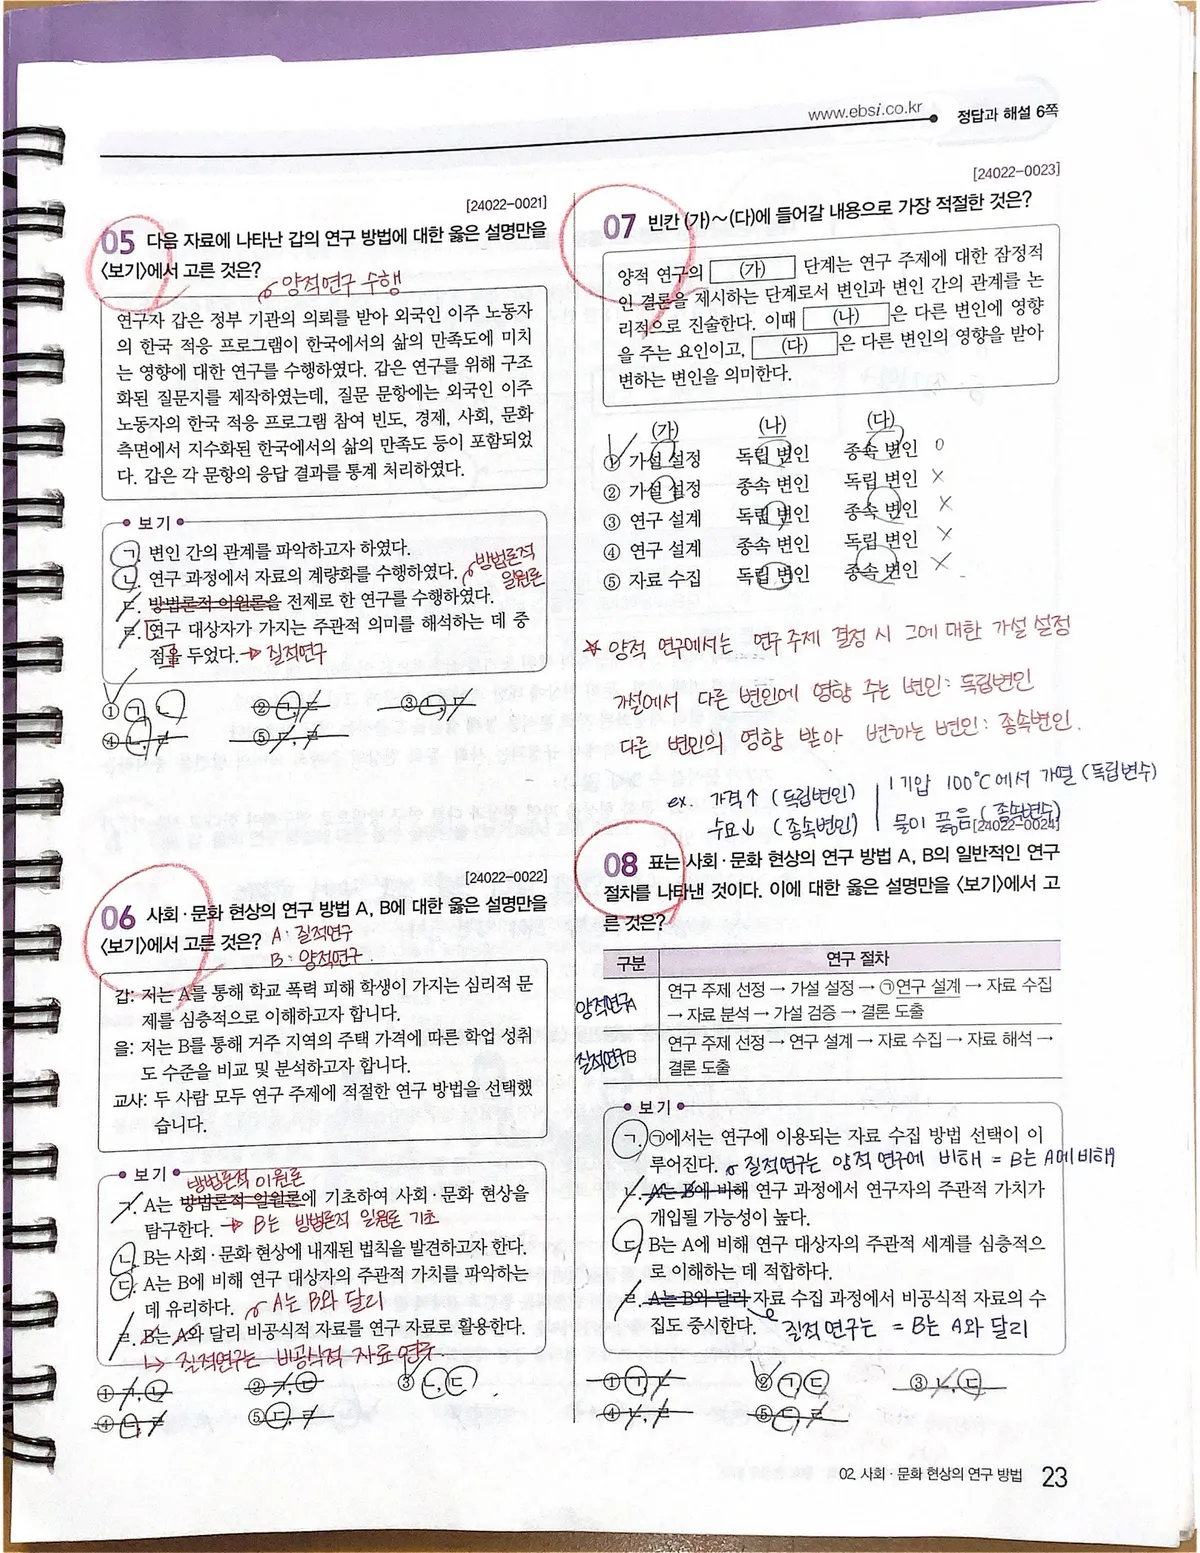 www.ebsi.co.kr
정답과 해설 6쪽
[24022-0021]
05 다음 자료에 나타난 갑의 연구 방법에 대한 옳은 설명만을
<보기>에서 고른 것은?
양적연구 수행
연구자 갑은 정부 기관의 의뢰를 받아 외국인 이주 노동자
의 한국 적응 프로그램이 한국에서의 삶의 만족도에 미치
는 영향에 대한 연구를 수행하였다. 갑은 연구를 위해 구조
화된 질문지를 제작하였는데, 질문 문항에는 외국인 이주
노동자의 한국 적응 프로그램 참여 빈도, 경제, 사회, 문화
측면에서 지수화된 한국에서의 삶의 만족도 등이 포함되었
다. 갑은 각 문항의 응답 결과를 통계 처리하였다.
보기
ㄱ. 변인 간의 관계를 파악하고자 하였다.
ㄴ. 연구 과정에서 자료의 계량화를 수행하였다.
방법론적
일원론
ㄷ. 방법론적 이원론을 전제로 한 연구를 수행하였다.
ㄹ. 연구 대상자가 가지는 주관적 의미를 해석하는 데 중
점을 두었다. → 질적연구
① ㄱ, ㄴ ② ㄱ, ㄷ ③ ㄴ, ㄷ
④ ㄴ, ㄹ ⑤ ㄷ, ㄹ
[24022-0022]
06 사회·문화 현상의 연구 방법 A, B에 대한 옳은 설명만을
<보기>에서 고른 것은? A: 질적연구
B: 양적연구
갑: 저는 A를 통해 학교 폭력 피해 학생이 가지는 심리적 문
제를 심층적으로 이해하고자 합니다.
을: 저는 B를 통해 거주 지역의 주택 가격에 따른 학업 성취
도 수준을 비교 및 분석하고자 합니다.
교사: 두 사람 모두 연구 주제에 적절한 연구 방법을 선택했
습니다.
보기
방법론적 이원론
ㄱ. A는 방법론적 일원론에 기초하여 사회·문화 현상을
탐구한다. → B는 방법론적 일원론 기초
ㄴ. B는 사회·문화 현상에 내재된 법칙을 발견하고자 한다.
ㄷ. A는 B에 비해 연구 대상자의 주관적 가치를 파악하는
데 유리하다. A는 B와 달리
ㄹ. B는 A와 달리 비공식적 자료를 연구 자료로 활용한다.
↳ 질적연구는 비공식적 자료 연구
① ㄱ, ㄴ ② ㄱ, ㄷ ③ ㄴ, ㄷ
④ ㄴ, ㄹ ⑤ ㄷ, ㄹ
[24022-0023]
07 빈칸 (가)~(다)에 들어갈 내용으로 가장 적절한 것은?
양적 연구의 (가) 단계는 연구 주제에 대한 잠정적
인 결론을 제시하는 단계로서 변인과 변인 간의 관계를 논
리적으로 진술한다. 이때 (나) 은 다른 변인에 영향
을 주는 요인이고, (다) 은 다른 변인의 영향을 받아
변하는 변인을 의미한다.
(가) (나) (다)
① 가설 설정 독립 변인 종속 변인 O
② 가설 설정 종속 변인 독립 변인 X
③ 연구 설계 독립 변인 종속 변인 X
④ 연구 설계 종속 변인 독립 변인 X
⑤ 자료 수집 독립 변인 종속 변인 X
★ 양적 연구에서는 연구 주제 결정 시 그에 대한 가설 설정
가설에서 다른 변인에 영향 주는 변인: 독립변인
다른 변인의 영향 받아 변하는 변인: 종속변인.
ex. 가격↑ (독립변인) | 1기압 100℃에서 가열 (독립변수)
수요↓ (종속변인) | 물이 끓음 (종속변수)
[24022-0024]
08 표는 사회·문화 현상의 연구 방법 A, B의 일반적인 연구
절차를 나타낸 것이다. 이에 대한 옳은 설명만을 <보기>에서 고
른 것은?
구분 연구 절차
양적연구 A 연구 주제 선정 → 가설 설정 → ㉠연구 설계 → 자료 수집
→ 자료 분석 → 가설 검증 → 결론 도출
질적연구 B 연구 주제 선정 → 연구 설계 → 자료 수집 → 자료 해석 →
결론 도출
보기
ㄱ. ㉠에서는 연구에 이용되는 자료 수집 방법 선택이 이
루어진다. 질적연구는 양적 연구에 비해 = B는 A에 비해
ㄴ. A는 B에 비해 연구 과정에서 연구자의 주관적 가치가
개입될 가능성이 높다.
ㄷ. B는 A에 비해 연구 대상자의 주관적 세계를 심층적으
로 이해하는 데 적합하다.
ㄹ. A는 B와 달리 자료 수집 과정에서 비공식적 자료의 수
집도 중시한다. 질적연구는 = B는 A와 달리
① ㄱ, ㄴ ② ㄱ, ㄷ ③ ㄴ, ㄷ
④ ㄴ, ㄹ ⑤ ㄷ, ㄹ
02. 사회·문화 현상의 연구 방법 23